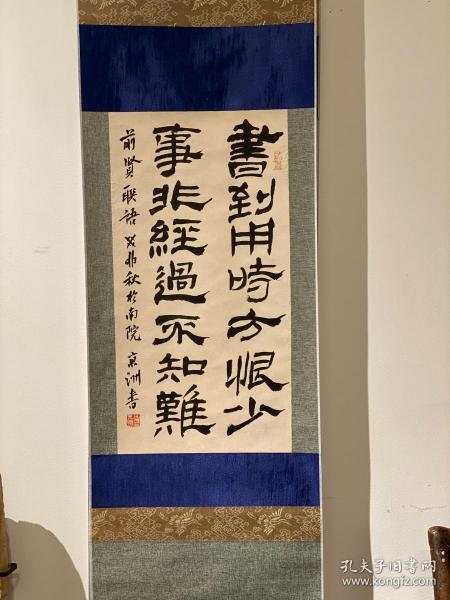 書到用時方恨少
事非經過不知難
前賢聯語 癸卯秋於南院 京洲書
孔夫子旧书网
www.kongfz.com